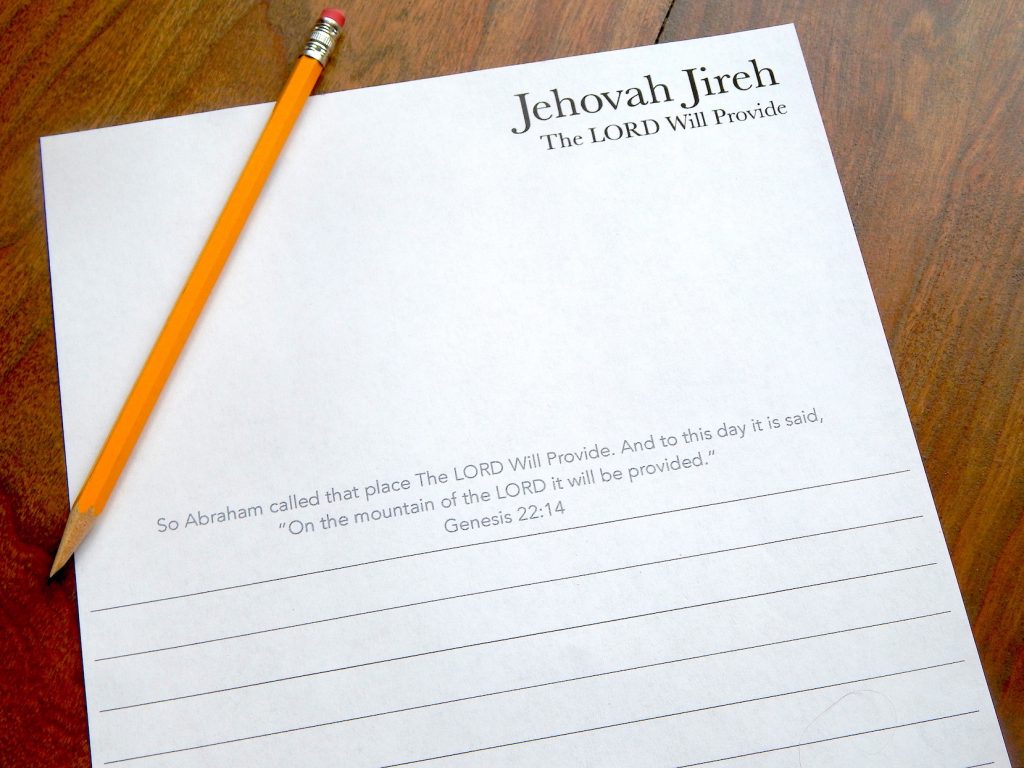 Jehovah Jireh
The LORD Will Provide
So Abraham called that place The LORD Will Provide. And to this day it is said,
“On the mountain of the LORD it will be provided.”
Genesis 22:14